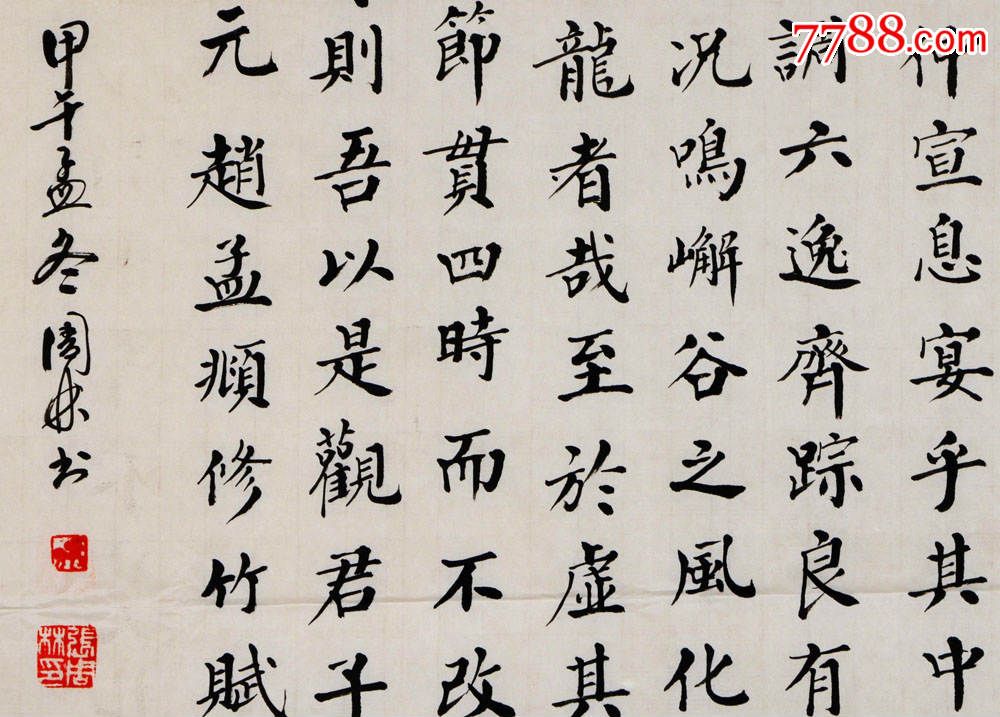 7788.com
仲宣息宴乎其中
調六逸齊踪良有
况鳴嶰谷之風化
龍者哉至於虛其
節貫四時而不改
則吾以是觀君子
元趙孟頫修竹賦
甲午孟冬周林书
張周林印